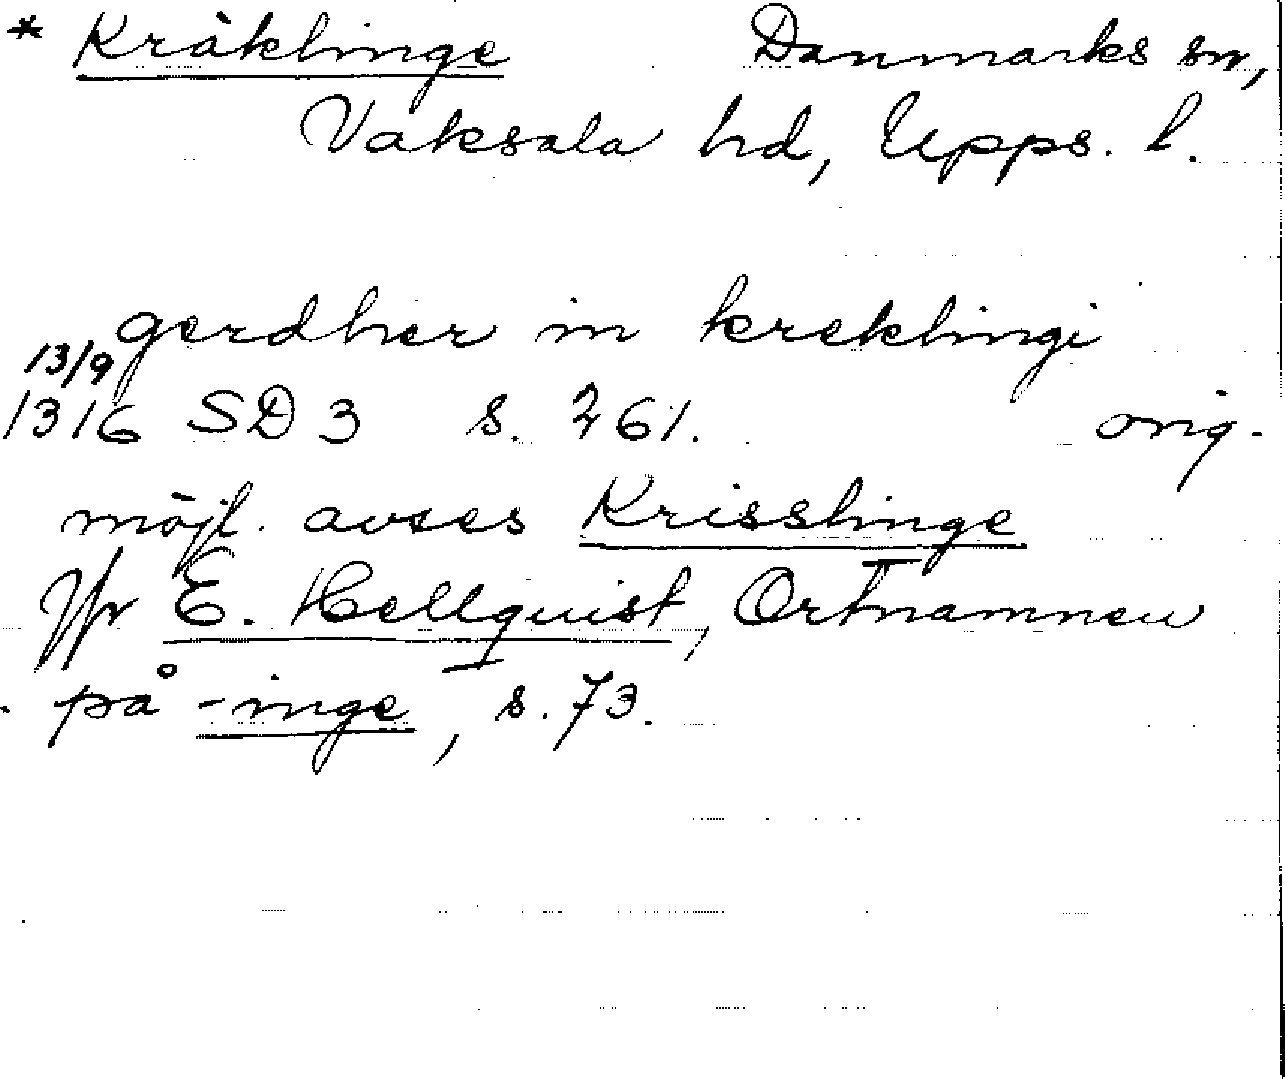 * Kräklinge Danmarks sn,
Vaksala hd, Upps. l.
gerdher in kreklingi
13/9
1316 SD 3 s. 261. orig.
möjl. avses Krisslinge
Jfr E. Hellquist, Ortnamnen
på -inge, s. 73.